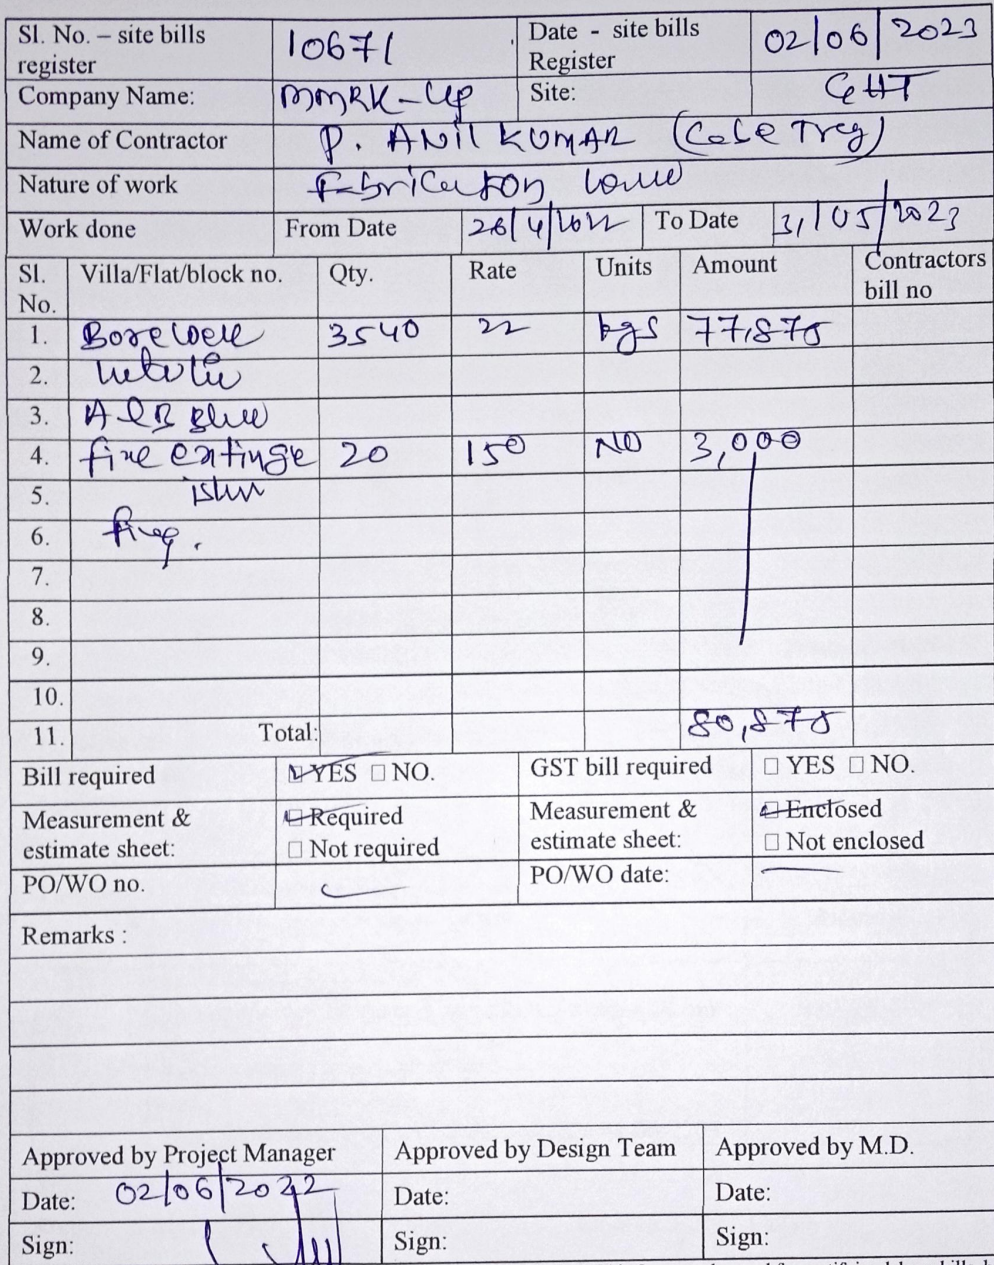 Sl. No. – site bills register 10671 Date - site bills Register 02/06/2023
Company Name: MMRK-UP Site: GHT
Name of Contractor P. ANIL KUMAR
Nature of work
Work done From Date To Date 31/05/2023
Sl. No. Villa/Flat/block no. Qty. Rate Units Amount Contractors bill no
1. Borewell 3540 22 kgs
2.
3.
4. fire extinge 20 150 NO 3,000
5.
6.
7.
8.
9.
10.
11. Total:
Bill required ☑ YES □ NO. GST bill required □ YES □ NO.
Measurement & estimate sheet: ☑ Required □ Not required Measurement & estimate sheet: ☑ Enclosed □ Not enclosed
PO/WO no. PO/WO date:
Remarks :
Approved by Project Manager Approved by Design Team Approved by M.D.
Date: Date: Date:
Sign: Sign: Sign: